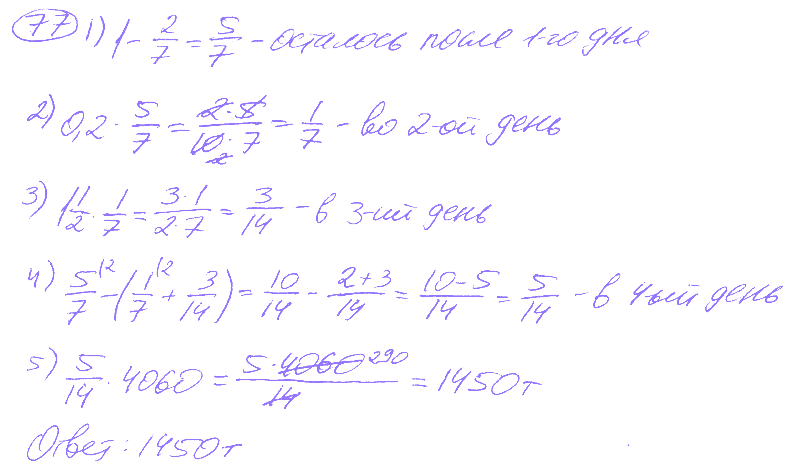 77 1) 1 - 2/7 = 5/7 - осталось после 1-го дня
2) 0,2 · 5/7 = 2·5/10·7 = 1/7 - во 2-ой день
3) 1 1/2 · 1/7 = 3·1/2·7 = 3/14 - в 3-ий день
4) 5/7 |2 - (1/7 |2 + 3/14) = 10/14 - 2+3/14 = 10-5/14 = 5/14 - в 4ый день
5) 5/14 · 4060 = 5·4060 290/14 = 1450т
Ответ: 1450т